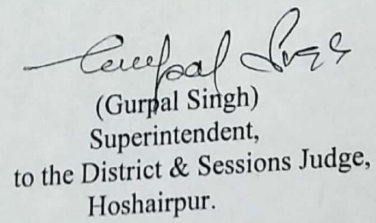 Gurpal Singh
(Gurpal Singh)
Superintendent,
to the District & Sessions Judge,
Hoshairpur.